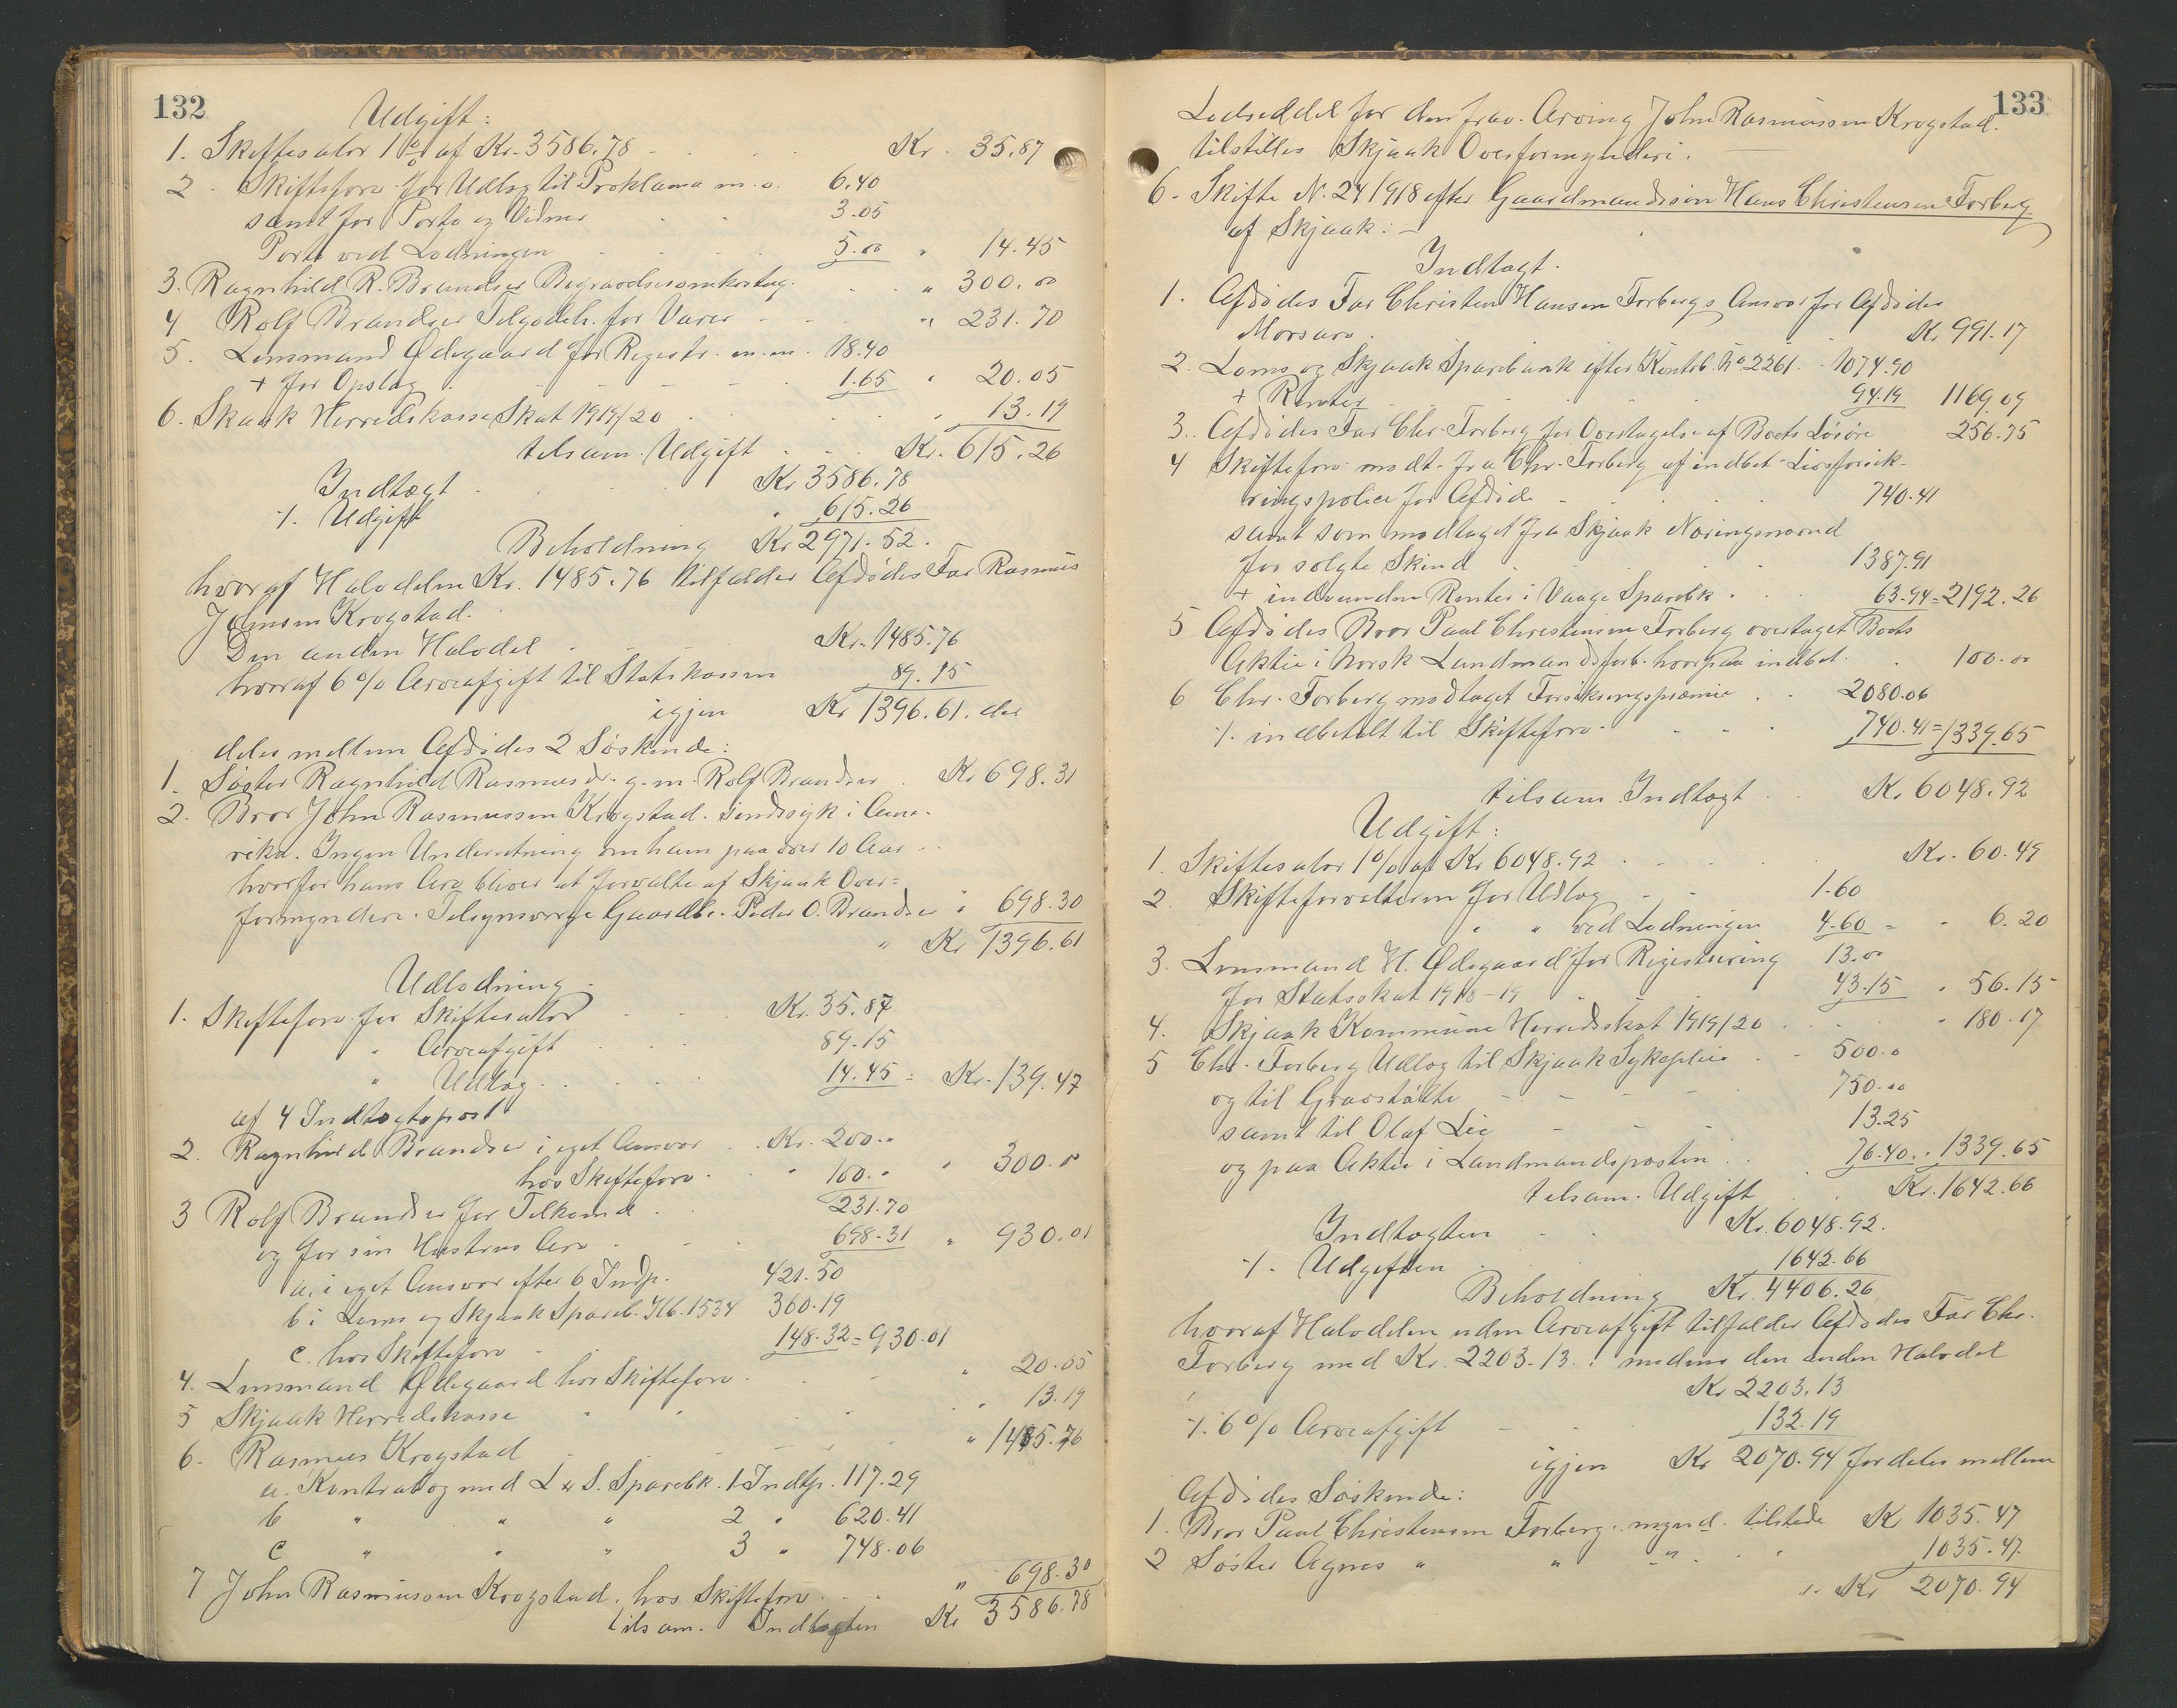 132
Udgift:
1. Skiftesalær 1% af Kr. 3586.78 Kr. 35.87
2. Skifteforv. for Udlæg til Proklama m.v. 6.40
samt for Porto og Vidner 3.05
Porto ved Lodningen 5.00 " 14.45
3. Ragnhild R. Brandser Begravelsesomkostng. " 300.00
4 Rolf Brandser Tilgodeh. for Varer " 231.70
5. Lensmand Ødegaard for Registr. m.m. 18.40
+ for Opslag 1.65 " 20.05
6. Skaak Herredskasse Skat 1919/20 " 13.19
tilsam. Udgift Kr. 615.26
Indtægt Kr 3586.78
÷ Udgift " 615.26
Beholdning Kr 2971.52.
hvoraf Halvdelen Kr. 1485.76 tilfalder Afdødes Far Rasmus
Johnsen Krogstad.
Den anden Halvdel Kr. 1485.76
hvoraf 6% Arveafgift til Statskassen 89.15
igjen Kr 1396.61. der
deles mellem Afdødes 2 Søskende:
1. Søster Ragnhild Rasmusdr. g.m. Rolf Brandser Kr 698.31
2. Bror John Rasmussen Krogstad. sindssyk i Ame-
rika. Ingen Underretning om ham paa over 10 Aar
hvorfor hans Arv bliver at forvalte af Skjaak Over=
formynderi. Tilsynsverge Gaardbr. Peder O. Brandser " 698.30
" Kr 1396.61
Udlodning.
1. Skifteforv. for Skiftesalær Kr. 35.87
" Arveafgift 89.15
" Udlæg 14.45 = Kr. 139.47
af 4 Indtægtspost
2. Ragnhild Brandser i eget Ansvar Kr. 200.00
hos Skifteforv. " 100.00 " 300.00
3 Rolf Brandser for Tilkomd. 231.70
og for sin Hustrus Arv 698.31 " 930.01
a. i eget Ansvar efter 6 Indp. 421.50
b i Loms og Skjaak Spareb. Ktb. 1534 360.19
c. hos Skifteforv 148.32 = 930.01
4. Lensmand Ødegaard hos Skifteforv. " 20.05
5 Skjaak Herredskasse " " " 13.19
6. Rasmus Krogstad " 1485.76
a. Kontrabog med L & S. Sparebk. 1 Indtp. 117.29
b " " " 2 " 620.41
c " " " 3 " 748.06
7 John Rasmussen Krogstad. hos Skifteforv. " 698.30
tilsam. Indtægten Kr 3586.78
133
Lodseddel for den frav. Arving John Rasmussen Krogstad.
tilstilles Skjaak Overformynderi.
6. Skifte N. 24/1918 efter Gaardmandssøn Hans Christensen Forberg
af Skjaak:
Indtægt.
1. Afdødes Far Christen Hansen Forbergs Ansvar for Afdødes
Morsarv. Kr 991.17
2. Loms og Skjaak Sparebank efter Kontrb. No 2261. 1074.90
+ Renter 94.19 1169.09
3. Afdødes Far Chr. Forberg for Overtagelse af Boets Løsøre 256.75
4 Skifteforv. modt. fra Chr. Forberg af indbet. Livsforsik-
ringspolice for Afdøde 740.41
samt som modtaget fra Skjaak Næringsnævnd
for solgte Skind 1387.91
+ indvundne Renter i Vaage Sparebk. 63.94 = 2192.26
5 Afdødes Bror Paal Christensen Forberg overtaget Boets
Aktie i Norsk Landmandsforb. hvorpaa indbet. 100.00
6 Chr. Forberg modtaget Forsikringspræmie 2080.06
÷ indbetalt til Skifteforv. 740.41 = 1339.65
tilsam. Indtægt Kr. 6048.92
Udgift:
1. Skiftesalær 1% af Kr 6048.92 Kr. 60.49
2. Skifteforvalteren for Udlæg 1.60
" " ved Lodningen 4.60 = " 6.20
3. Lensmand H. Ødegaard for Registrering 13.00
for Statsskat 1918-19 43.15 " 56.15
4. Skjaak Kommune Herredsskat 1919/20 " 180.17
5 Chr. Forberg Udlæg til Skjaak Sykepleie 500.00
og til Gravstøtte 750.00
samt til Olaf Lie 13.25
og paa Aktie i Landmandsposten 76.40 " 1339.65
tilsam. Udgift Kr. 1642.66
Indtægten Kr. 6048.92.
÷ Udgiften 1642.66
Beholdning Kr. 4406.26
hvoraf Halvdelen uden Arveafgift tilfalder Afdødes Far Chr.
Forberg med Kr. 2203.13. medens den anden Halvdel
Kr 2203.13
÷ 6% Arveafgift 132.19
igjen Kr 2070.94 fordeles mellem
Afdødes Søskende:
1. Bror Paal Christensen Forberg. mynd. tilstede Kr 1035.47
2 Søster Agnes " " " " 1035.47
Kr 2070.94